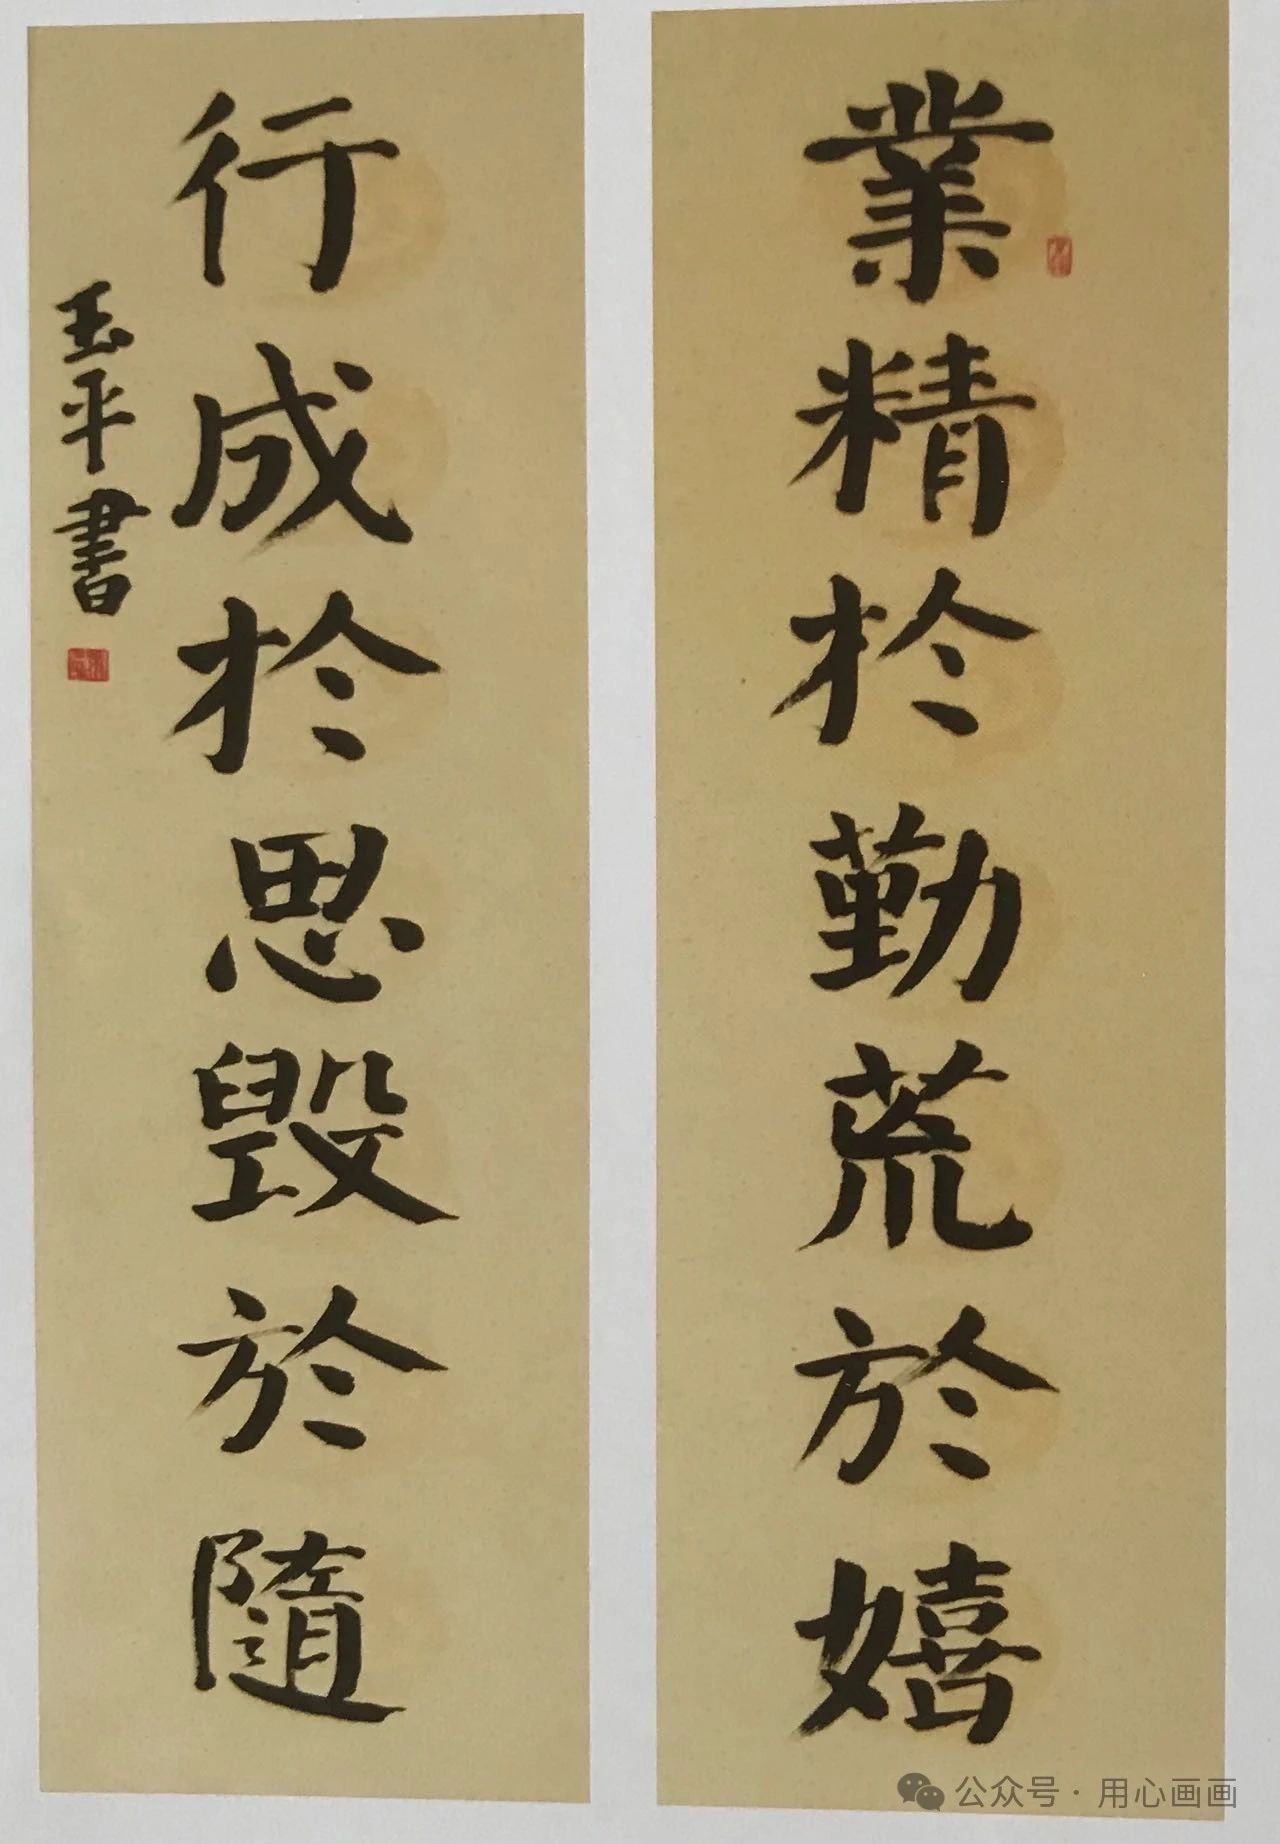 業精於勤荒於嬉
行成於思毀於隨
玉平書
公众号·用心画画